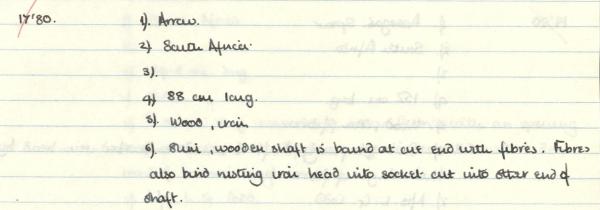 17'80. 1). Arrow.
2) South Africa.
3).
4) 88 cm long.
5). Wood, iron
6). Thin, wooden shaft is bound at one end with fibres. Fibres
also bind rusting iron head into socket cut into other end of
shaft.